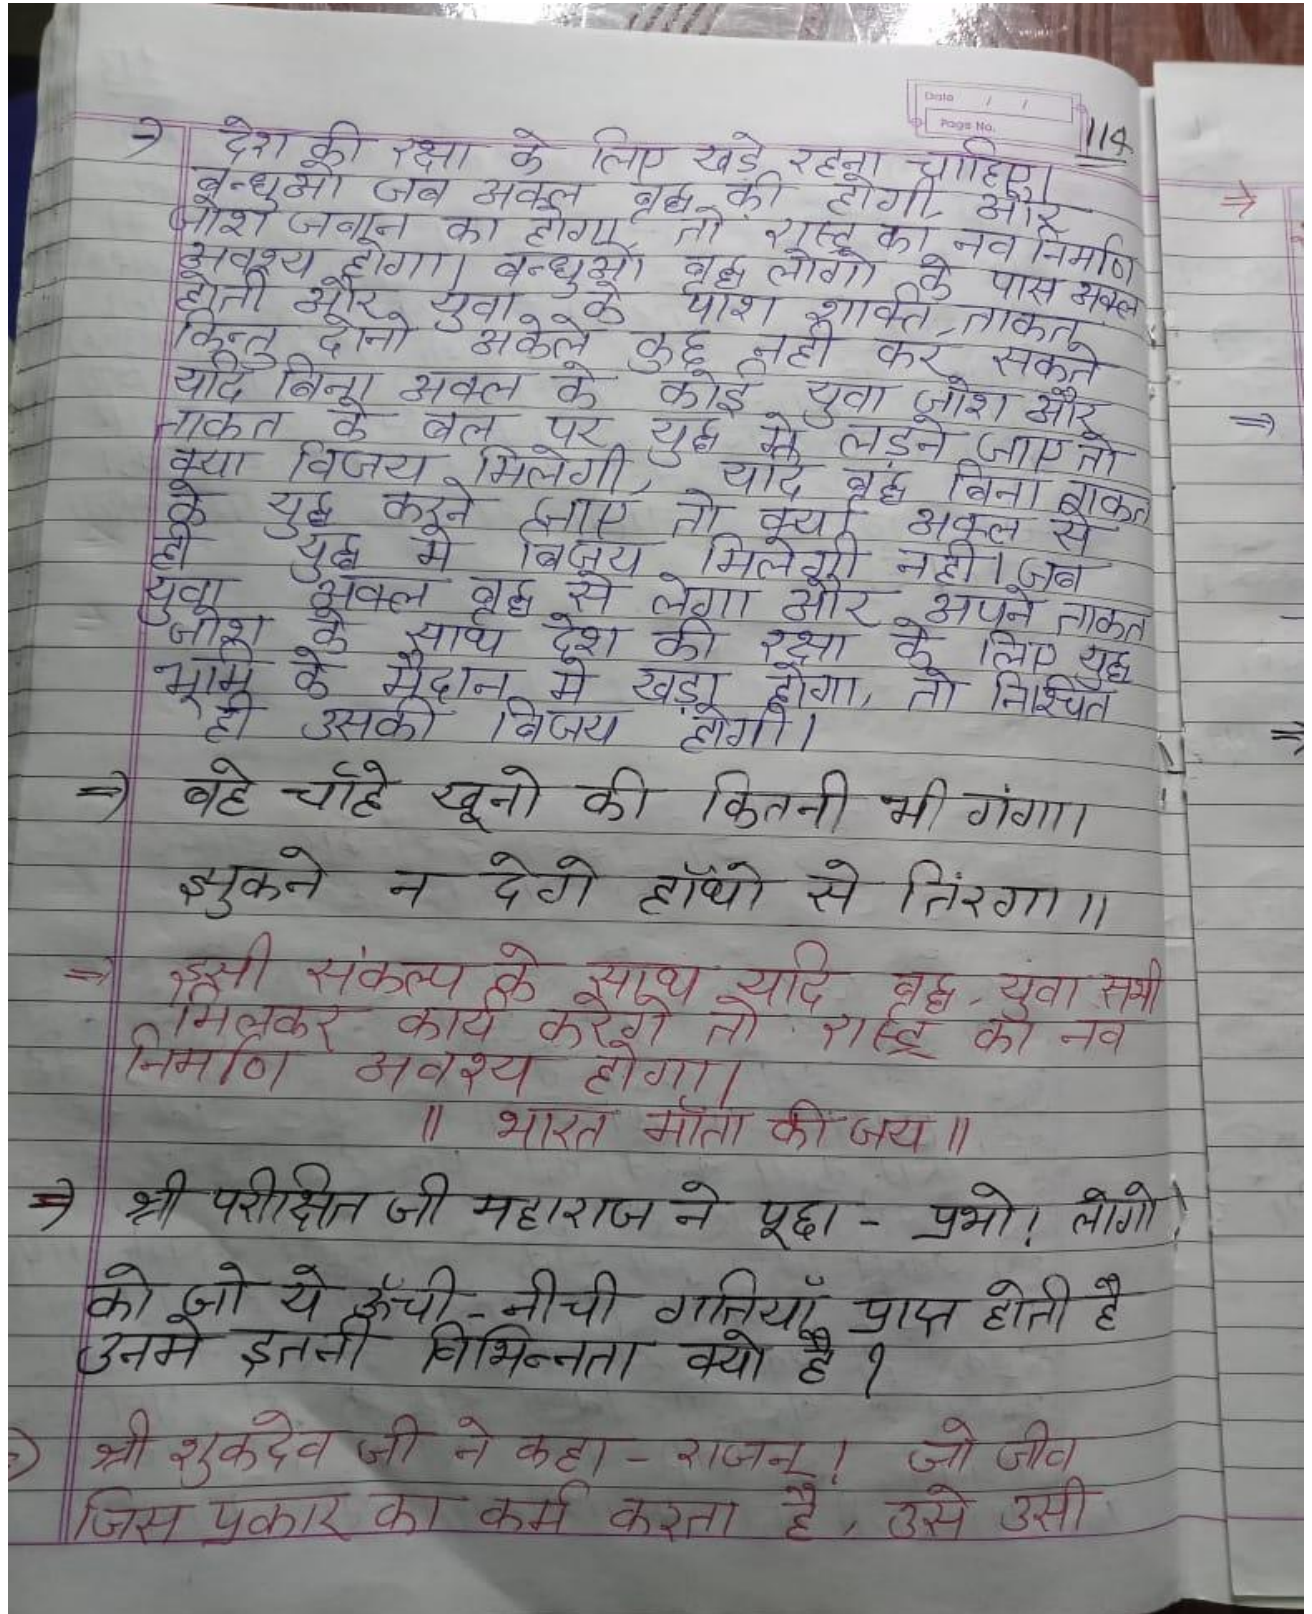 Date / /
Page No.
114
⇒ देश की रक्षा के लिए खडे रहना चाहिए।
बन्धुओ जब अकल बृद्ध की होगी, और
जोश जवान का होगा, तो राष्ट्र का नव निर्माण
अवश्य होगा। बन्धुओ बृद्ध लोगो के पास अक्ल
होती और युवा के पाश शक्ति, ताकत,
किन्तु दोनो अकेले कुछ नही कर सकते
यदि बिना अक्ल के कोई युवा जोश और
ताकत के बल पर युद्ध मे लडने जाए तो
क्या विजय मिलेगी, यदि बृद्ध बिना ताकत
के युद्ध करने जाए तो क्या अकल से
ही युद्ध मे बिजय मिलेगी नही। जब
युवा अक्ल बृद्ध से लेगा और अपने ताकत
जोश के साथ देश की रक्षा के लिए युद्ध
भूमि के मैदान मे खड़ा होगा, तो निश्चित
ही उसकी बिजय होगी।
⇒ बहे चाँहे खूनो की कितनी भी गंगा।
झुकने न देगे हाँथो से तिंरगा॥
⇒ इसी संकल्प के साथ यदि बृद्ध, युवा सभी
मिलकर कार्य करेगे तो राष्ट्र का नव
निर्माण अवश्य होगा।
॥ भारत माँता की जय॥
⇒ श्री परीक्षित जी महाराज ने पूछा - प्रभो! लोगो
को जो ये ऊँची-नीची गतियाँ प्राप्त होती है
उनमे इतनी विभिन्नता क्यो है?
श्री शुकदेव जी ने कहा - राजन्! जो जीव
जिस प्रकार का कर्म करता है, उसे उसी